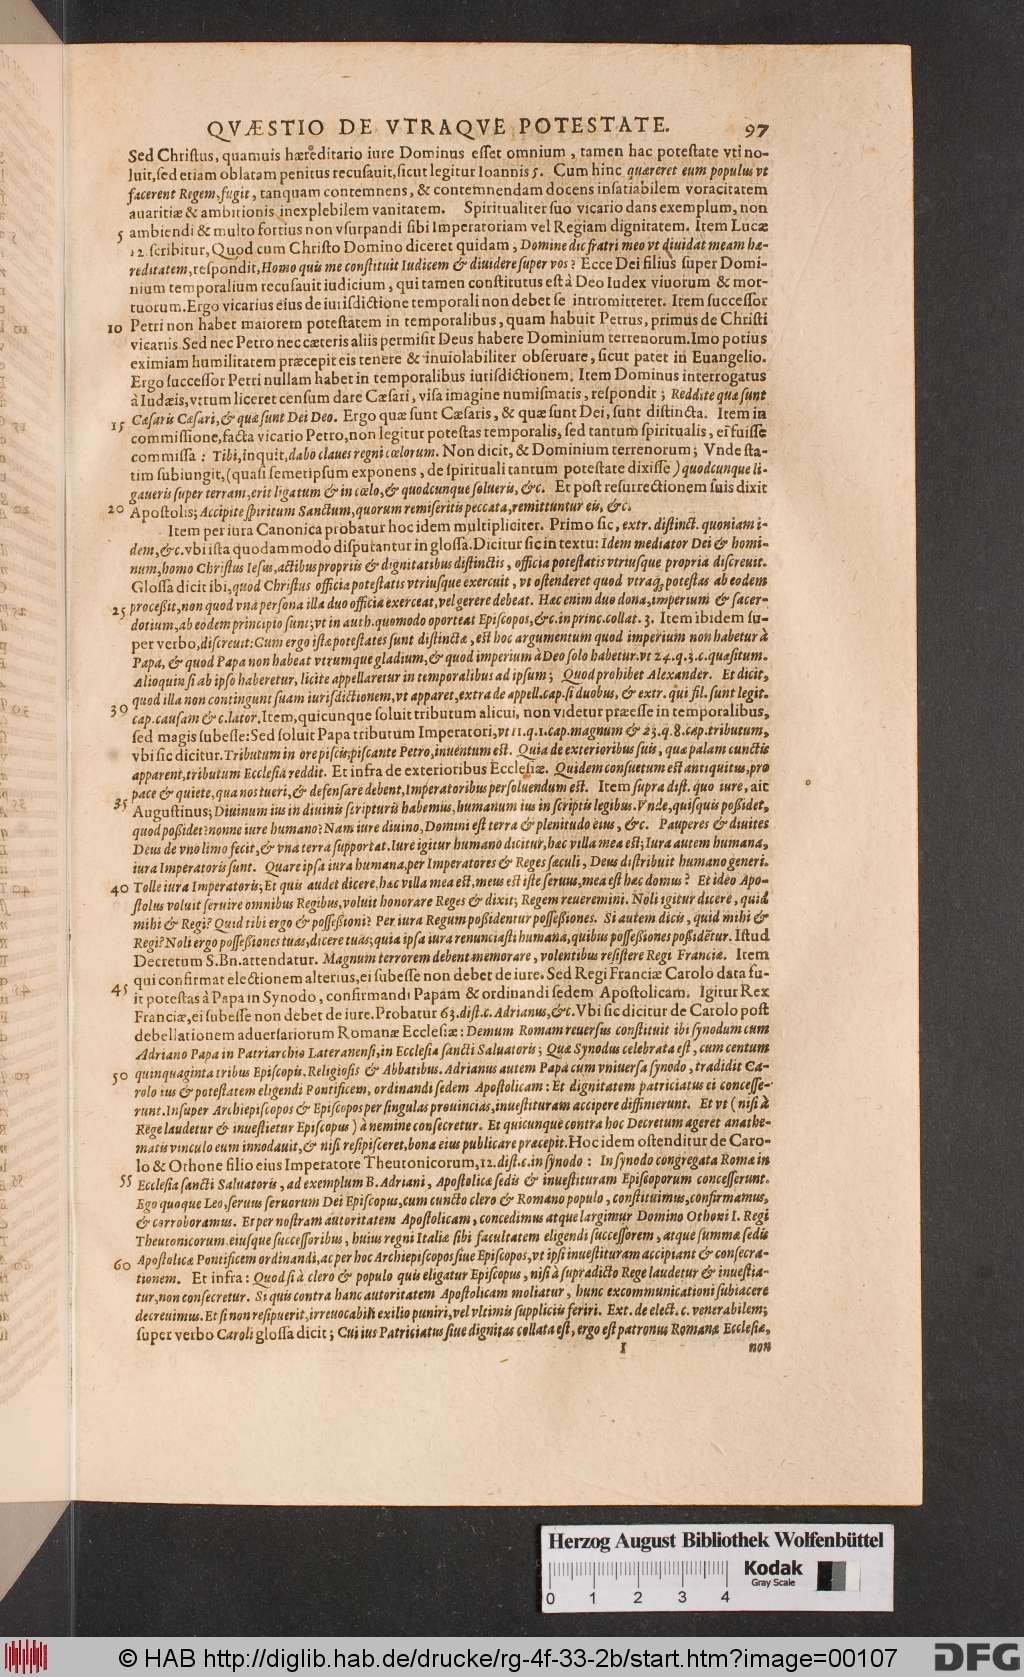 QVÆSTIO DE VTRAQVE POTESTATE. 97
Sed Christus, quamuis hæreditario iure Dominus esset omnium, tamen hac potestate vti no-
luit, sed etiam oblatam penitus recusauit, sicut legitur Ioannis 5. Cum hinc quæreret eum populus vt
facerent Regem, fugit, tanquam contemnens, & contemnendam docens insatiabilem voracitatem
auaritiæ & ambitionis inexplebilem vanitatem. Spiritualiter suo vicario dans exemplum, non
5 ambiendi & multo fortius non vsurpandi sibi Imperatoriam vel Regiam dignitatem. Item Lucæ
12. scribitur, Quod cum Christo Domino diceret quidam, Domine dic fratri meo vt diuidat meam hæ-
reditatem, respondit, Homo quis me constituit Iudicem & diuidere super vos? Ecce Dei filius super Domi-
nium temporalium recusauit iudicium, qui tamen constitutus est à Deo Iudex viuorum & mor-
tuorum. Ergo vicarius eius de iurisdictione temporali non debet se intromitteret. Item successor
10 Petri non habet maiorem potestatem in temporalibus, quam habuit Petrus, primus de Christi
vicariis. Sed nec Petro nec cæteris aliis permisit Deus habere Dominium terrenorum. Imo potius
eximiam humilitatem præcepit eis tenere & inuiolabiliter obseruare, sicut patet in Euangelio.
Ergo successor Petri nullam habet in temporalibus iurisdictionem. Item Dominus interrogatus
à Iudæis, vtrum liceret censum dare Cæsari, visa imagine numismatis, respondit; Reddite quæ sunt
15 Cæsaris Cæsari, & quæ sunt Dei Deo. Ergo quæ sunt Cæsaris, & quæ sunt Dei, sunt distincta. Item in
commissione, facta vicario Petro, non legitur potestas temporalis, sed tantum spiritualis, ei fuisse
commissa: Tibi, inquit, dabo claues regni cœlorum. Non dicit, & Dominium terrenorum; Vnde sta-
tim subiungit, (quasi semetipsum exponens, de spirituali tantum potestate dixisse) quodcunque li-
gaueris super terram, erit ligatum & in cœlo, & quodcunque solueris, &c. Et post resurrectionem suis dixit
20 Apostolis; Accipite spiritum Sanctum, quorum remiseritis peccata, remittuntur eis, &c.
Item per iura Canonica probatur hoc idem multipliciter. Primo sic, extr. distinct. quoniam i-
dem, &c. vbi ista quodammodo disputantur in glossa. Dicitur sic in textu: Idem mediator Dei & homi-
num, homo Christus Iesus, actibus propriis & dignitatibus distinctis, officia potestatis vtriusque propria discreuit.
Glossa dicit ibi, quod Christus officia potestatis vtriusque exercuit, vt ostenderet quod vtraq; potestas ab eodem
25 processit, non quod vna persona illa duo officia exerceat, vel gerere debeat. Hæc enim duo dona, imperium & sacer-
dotium, ab eodem principio sunt; vt in auth. quomodo oporteat Episcopos, &c. in princ. collat. 3. Item ibidem su-
per verbo, discreuit: Cum ergo istæ potestates sunt distinctæ, est hoc argumentum quod imperium non habetur à
Papa, & quod Papa non habeat vtrumque gladium, & quod imperium à Deo solo habetur. vt 24. q. 3. c. quæsitum.
Alioquin si ab ipso haberetur, licite appellaretur in temporalibus ad ipsum; Quod prohibet Alexander. Et dicit,
quod illa non contingunt suam iurisdictionem, vt apparet, extra de appell. cap. si duobus, & extr. qui fil. sunt legit.
30 cap. causam & c. lator. Item, quicunque soluit tributum alicui, non videtur præesse in temporalibus,
sed magis subesse: Sed soluit Papa tributum Imperatori, vt 11. q. 1. cap. magnum & 23. q. 8. cap. tributum,
vbi sic dicitur. Tributum in ore piscis, piscante Petro, inuentum est. Quia de exterioribus suis, quæ palam cunctis
apparent, tributum Ecclesia reddit. Et infra de exterioribus Ecclesiæ. Quidem consuetum est antiquitus, pro
pace & quiete, qua nos tueri, & defensare debent, Imperatoribus persoluendum est. Item supra dist. quo iure, ait
35 Augustinus; Diuinum ius in diuinis scripturis habemus, humanum ius in scriptis legibus. Vnde, quisquis possidet,
quod possidet? nonne iure humano? Nam iure diuino, Domini est terra & plenitudo eius, &c. Pauperes & diuites
Deus de vno limo fecit, & vna terra supportat. Iure igitur humano dicitur, hæc villa mea est; Iura autem humana,
iura Imperatoris sunt. Quare ipsa iura humana, per Imperatores & Reges sæculi, Deus distribuit humano generi.
40 Tolle iura Imperatoris; Et quis audet dicere, hæc villa mea est, meus est iste seruus, mea est hæc domus? Et ideo Apo-
stolus voluit seruire omnibus Regibus, voluit honorare Reges & dixit; Regem reueremini. Noli igitur dicere, quid
mihi & Regi? Quid tibi ergo & possessioni? Per iura Regum possidentur possessiones. Si autem dicis, quid mihi &
Regi? Noli ergo possessiones tuas, dicere tuas; quia ipsa iura renunciasti humana, quibus possessiones possidētur. Istud
Decretum S. Bn. attendatur. Magnum terrorem debent memorare, volentibus resistere Regi Franciæ. Item
qui confirmat electionem alterius, ei subesse non debet de iure. Sed Regi Franciæ Carolo data fu-
45 it potestas à Papa in Synodo, confirmandi Papam & ordinandi sedem Apostolicam. Igitur Rex
Franciæ, ei subesse non debet de iure. Probatur 63. dist. c. Adrianus, &c. Vbi sic dicitur de Carolo post
debellationem aduersariorum Romanæ Ecclesiæ: Demum Romam reuersus constituit ibi synodum cum
Adriano Papa in Patriarchio Lateranensi, in Ecclesia sancti Saluatoris; Quæ Synodus celebrata est, cum centum
50 quinquaginta tribus Episcopis. Religiosis & Abbatibus. Adrianus autem Papa cum vniuersa synodo, tradidit Ca-
rolo ius & potestatem eligendi Pontificem, ordinandi sedem Apostolicam: Et dignitatem patriciatus ei concesse-
runt. Insuper Archiepiscopos & Episcopos per singulas prouincias, inuestituram accipere diffinierunt. Et vt (nisi à
Rege laudetur & inuestietur Episcopus) à nemine consecretur. Et quicunque contra hoc Decretum ageret anathe-
matis vinculo eum innodauit, & nisi resipisceret, bona eius publicare præcepit. Hoc idem ostenditur de Caro-
lo & Othone filio eius Imperatore Theutonicorum, 12. dist. c. in synodo: In synodo congregata Romæ in
55 Ecclesia sancti Saluatoris, ad exemplum B. Adriani, Apostolicæ sedis & inuestituram Episcoporum concesserunt.
Ego quoque Leo, seruus seruorum Dei Episcopus, cum cuncto clero & Romano populo, constituimus, confirmamus,
& corroboramus. Et per nostram autoritatem Apostolicam, concedimus atque largimur Domino Othoni I. Regi
Theutonicorum. eiusque successoribus, huius regni Italiæ sibi facultatem eligendi successorem, atque summæ sedis
60 Apostolicæ Pontificem ordinandi, ac per hoc Archiepiscopos siue Episcopos, vt ipsi inuestituram accipiant & consecra-
tionem. Et infra: Quod si à clero & populo quis eligatur Episcopus, nisi à supradicto Rege laudetur & inuestia-
tur, non consecretur. Si quis contra hanc autoritatem Apostolicam moliatur, hunc excommunicationi subiacere
decreuimus. Et si non resipuerit, irreuocabili exilio puniri, vel vltimis suppliciis feriri. Ext. de elect. c. venerabilem;
super verbo Caroli glossa dicit; Cui ius Patriciatus siue dignitas collata est, ergo est patronus Romanæ Ecclesiæ,
I non
Herzog August Bibliothek Wolfenbüttel
Kodak
Gray Scale
0 1 2 3 4
© HAB http://diglib.hab.de/drucke/rg-4f-33-2b/start.htm?image=00107
DFG